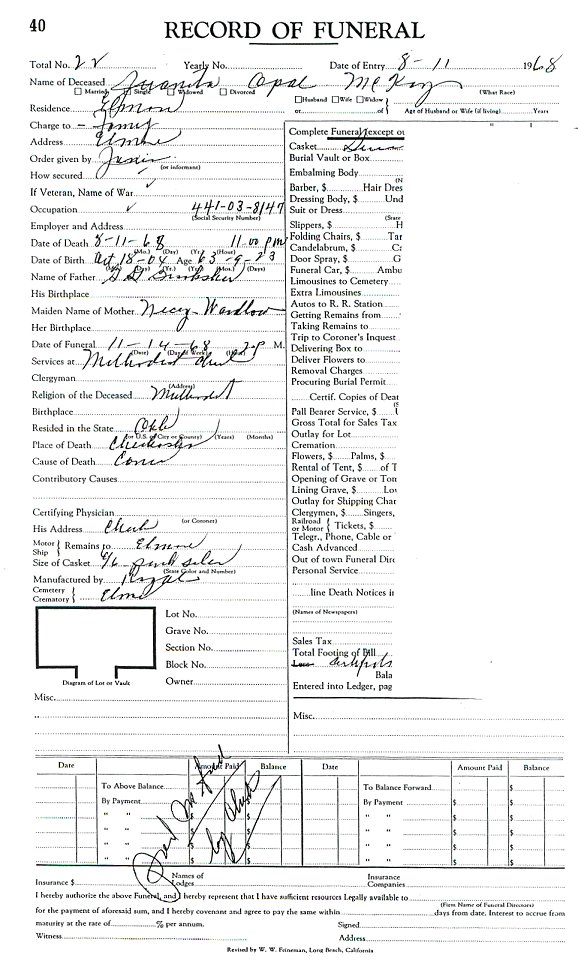 40
RECORD OF FUNERAL
Total No. 22 Yearly No. Date of Entry 8-11 1968
Name of Deceased Juanita Opal McKay
Married Single Widowed Divorced (What Race)
Residence Elmore
Husband Wife Widow
or of Age of Husband or Wife (if living) Years
Charge to - Family
Address Elmore
Order given by
(or informant)
How secured
If Veteran, Name of War
Occupation 441-03-8147
(Social Security Number)
Employer and Address
Date of Death 8-11-68 11:00 pm
(Mo.) (Day) (Yr.) (Hour)
Date of Birth Oct 18-04 Age 63-9-23
(Mo.) (Day) (Yr.) (Yrs.) (Mos.) (Days)
Name of Father
His Birthplace
Maiden Name of Mother Wardlow
Her Birthplace
Date of Funeral 11-14-68 2 P M.
(Date) (Day of Week) (Hour)
Services at Methodist
Clergyman
(Address)
Religion of the Deceased Methodist
Birthplace
Resided in the State Okla
(or U.S. or City or County) (Years) (Months)
Place of Death
Cause of Death
Contributory Causes
Certifying Physician
(or Coroner)
His Address
Motor Ship Remains to Elmore
Size of Casket 6/6
(State Color and Number)
Manufactured by Royal
Cemetery
Crematory Elmore
Diagram of Lot or Vault
Lot No.
Grave No.
Section No.
Block No.
Owner
Misc.
Complete Funeral (except ou
Casket
Burial Vault or Box
Embalming Body
(N
Barber, $ Hair Dres
Dressing Body, $ Und
Suit or Dress
(State
Slippers, $ H
Folding Chairs, $ Tar
Candelabrum, $ Ca
Door Spray, $ G
Funeral Car, $ Ambu
Limousines to Cemetery
Extra Limousines
Autos to R. R. Station
Getting Remains from
Taking Remains to
Trip to Coroner's Inquest
Delivering Box to
Deliver Flowers to
Removal Charges
Procuring Burial Permit
Certif. Copies of Deat
(S
Pall Bearer Service, $
Gross Total for Sales Tax
Outlay for Lot
Cremation
Flowers, $ Palms, $
Rental of Tent, $ of T
Opening of Grave or Tom
Lining Grave, $ Lo
Outlay for Shipping Char
Clergymen, $ Singers,
Railroad
or Motor Tickets, $
Telegr., Phone, Cable or
Cash Advanced
Out of town Funeral Dire
Personal Service
line Death Notices in
(Names of Newspapers)
Sales Tax
Total Footing of Bill
Less
Bala
Entered into Ledger, pag
Misc.
Date Amount Paid Balance Date Amount Paid Balance
To Above Balance $ To Balance Forward $
By Payment $ $ By Payment $ $
" " $ $ " " $ $
" " $ $ " " $ $
" " $ $ " " $ $
" " $ $ " " $ $
Paid in full
by
Insurance $ Names of Lodges Insurance Companies
I hereby authorize the above Funeral, and I hereby represent that I have sufficient resources Legally available to
(Firm Name of Funeral Directors)
for the payment of aforesaid sum, and I hereby covenant and agree to pay the same within days from date. Interest to accrue from
maturity at the rate of % per annum. Signed
Witness Address
Revised by W. W. Feineman, Long Beach, California